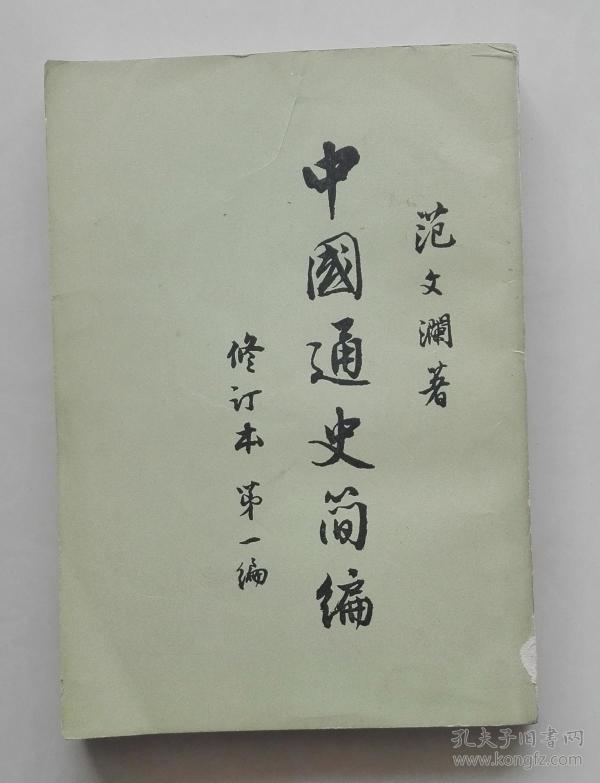 范文瀾著
中國通史简編
修订本 第一编
孔夫子旧书网
www.kongfz.com